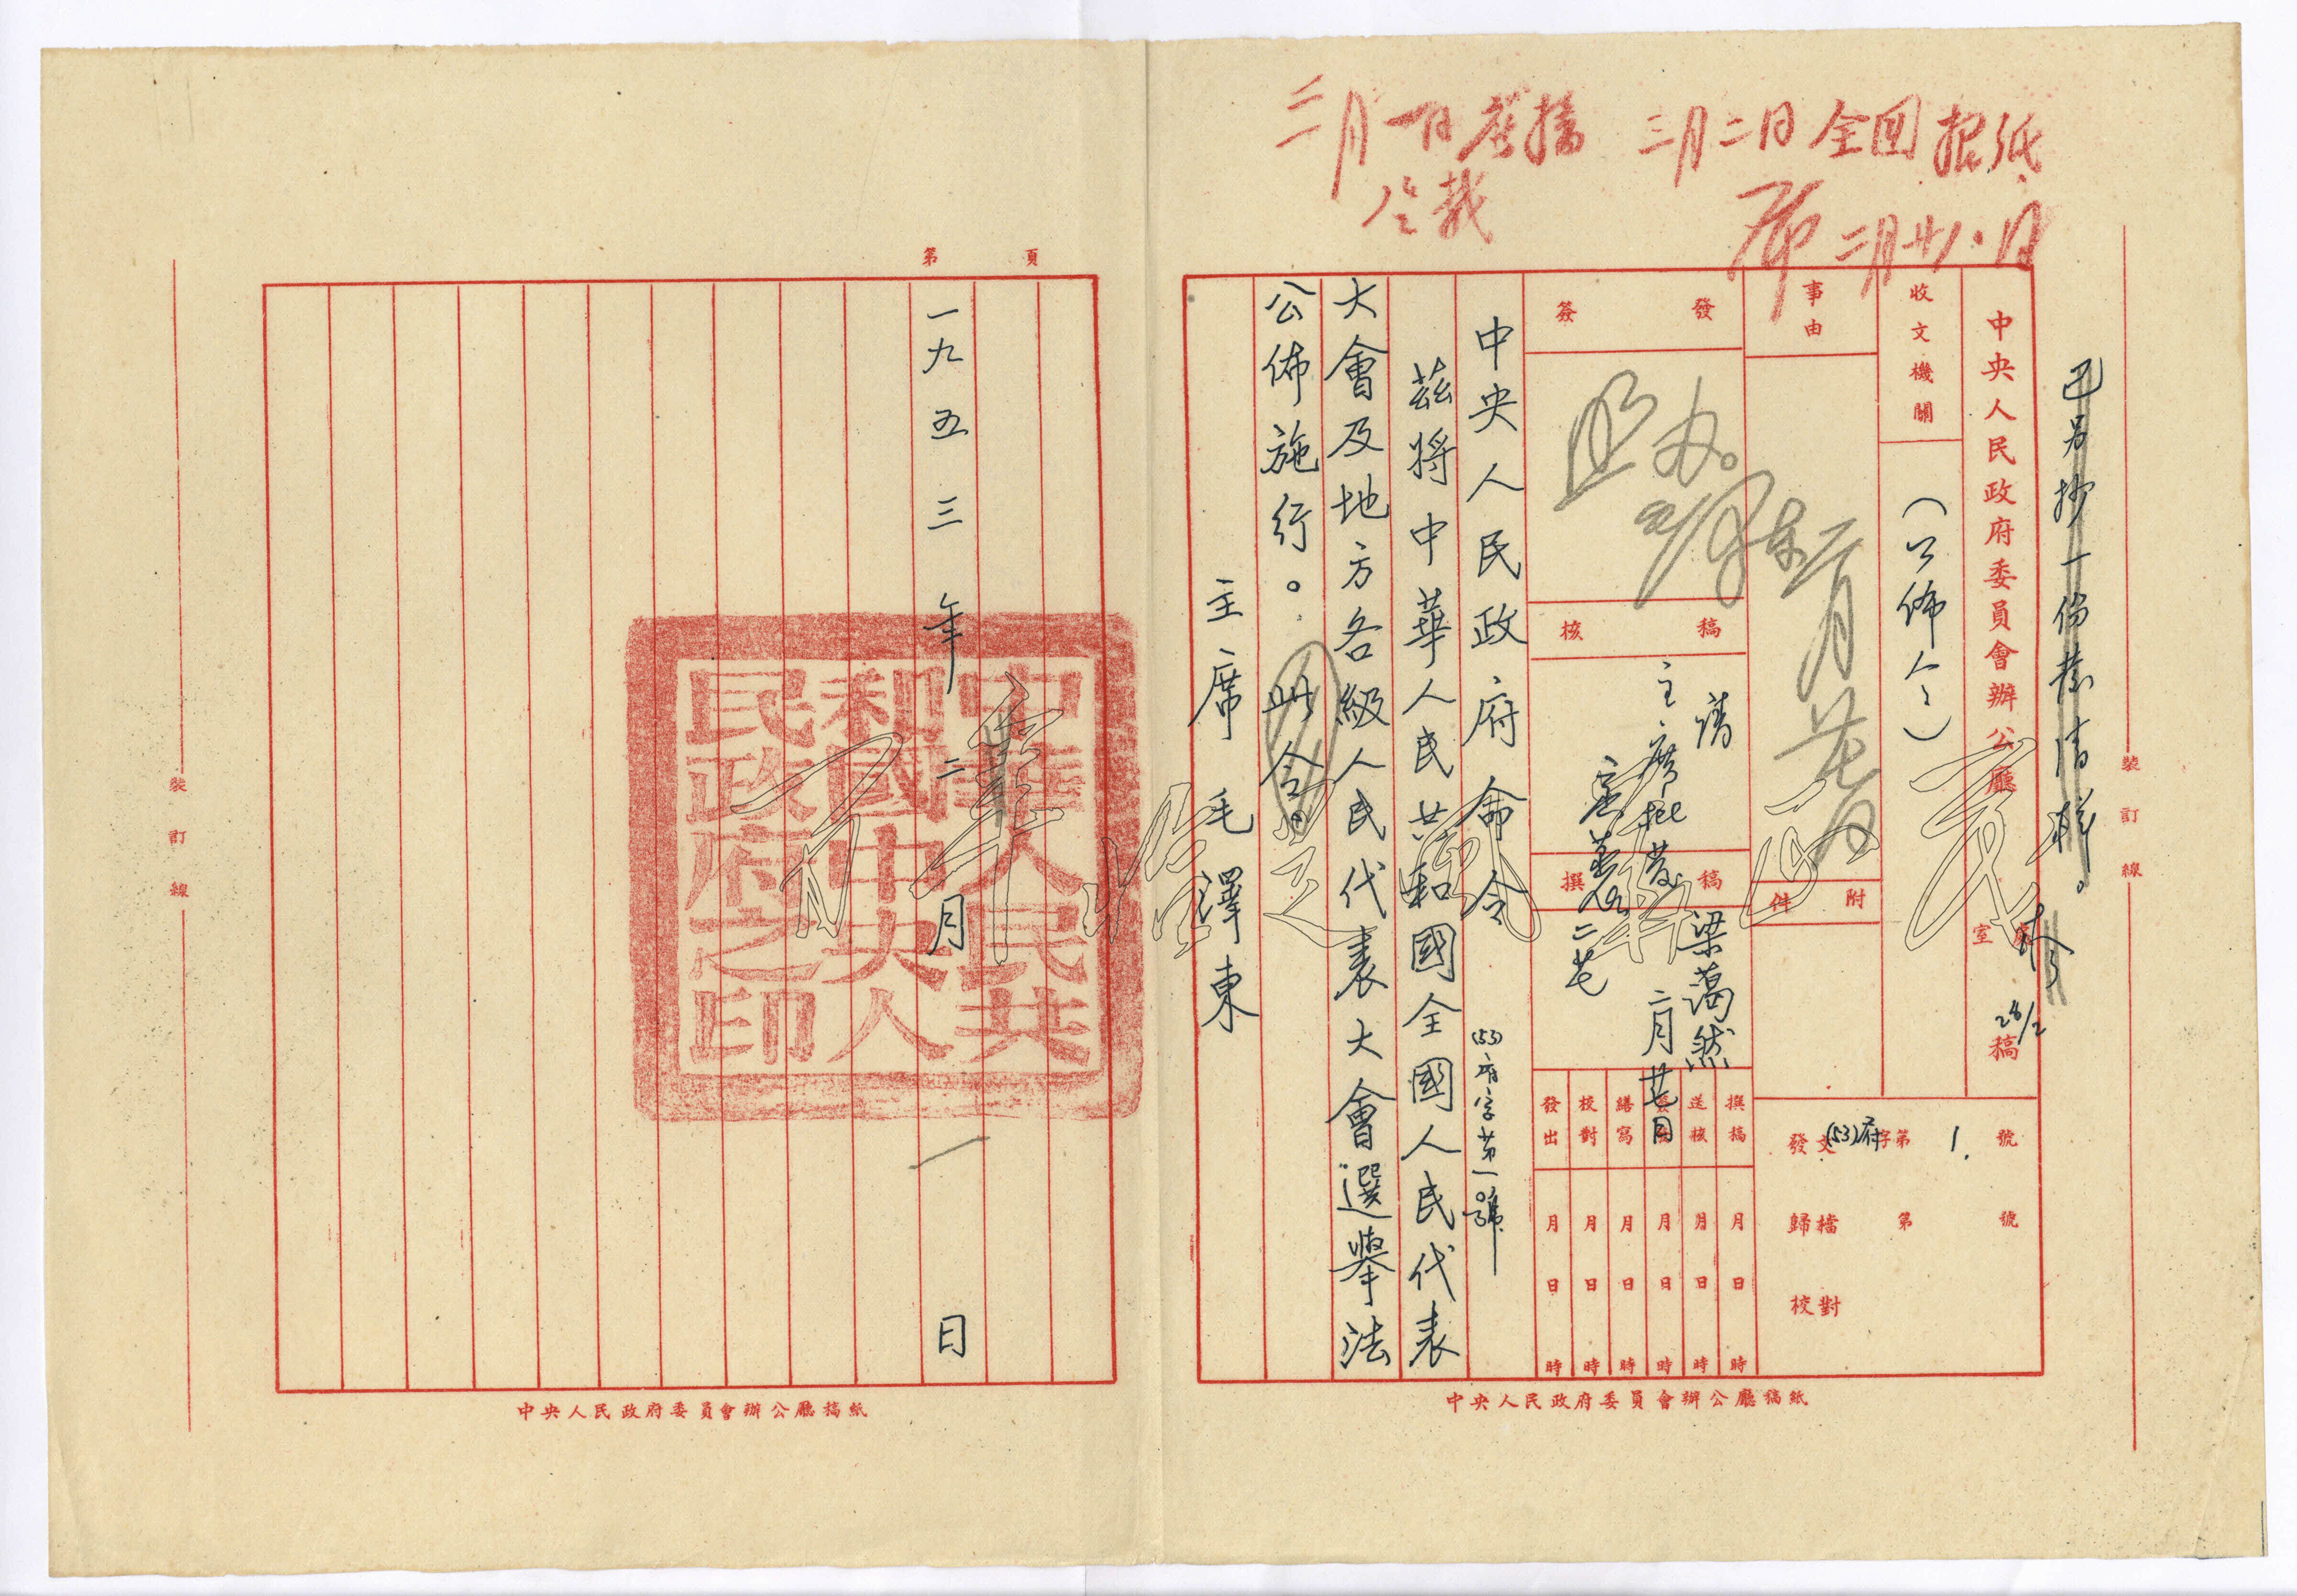 三月一日廣播 三月二日全國報紙
全載
席 二月廿八日
已另抄一份發清樣。
26/2
中央人民政府委員會辦公廳 室 稿
收文機關
(公佈令)
事由
附件
發文(53)府字第1.號
歸檔 第 號
校對
簽發
照办。
毛澤东
二月廿八日
核稿
請
主席批發
二月廿七日
撰稿
梁蔼然
二廿七
撰稿 月 日 時
送核 月 日 時
月 日 時
繕寫 月 日 時
校對 月 日 時
發出 月 日 時
中央人民政府命令
(53)府字第一號
茲將中華人民共和國全國人民代表
大會及地方各級人民代表大會選舉法
公佈施行。此令
主席毛澤東
中央人民政府委員會辦公廳稿紙
裝訂線
第 頁
一九五三年二月 日
中華人民共和國中央人民政府之印
中央人民政府委員會辦公廳稿紙
裝訂線